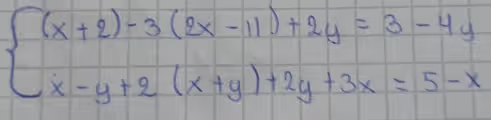 (x+2)-3(2x-11)+2y=3-4y
x-y+2(x+y)+2y+3x=5-x